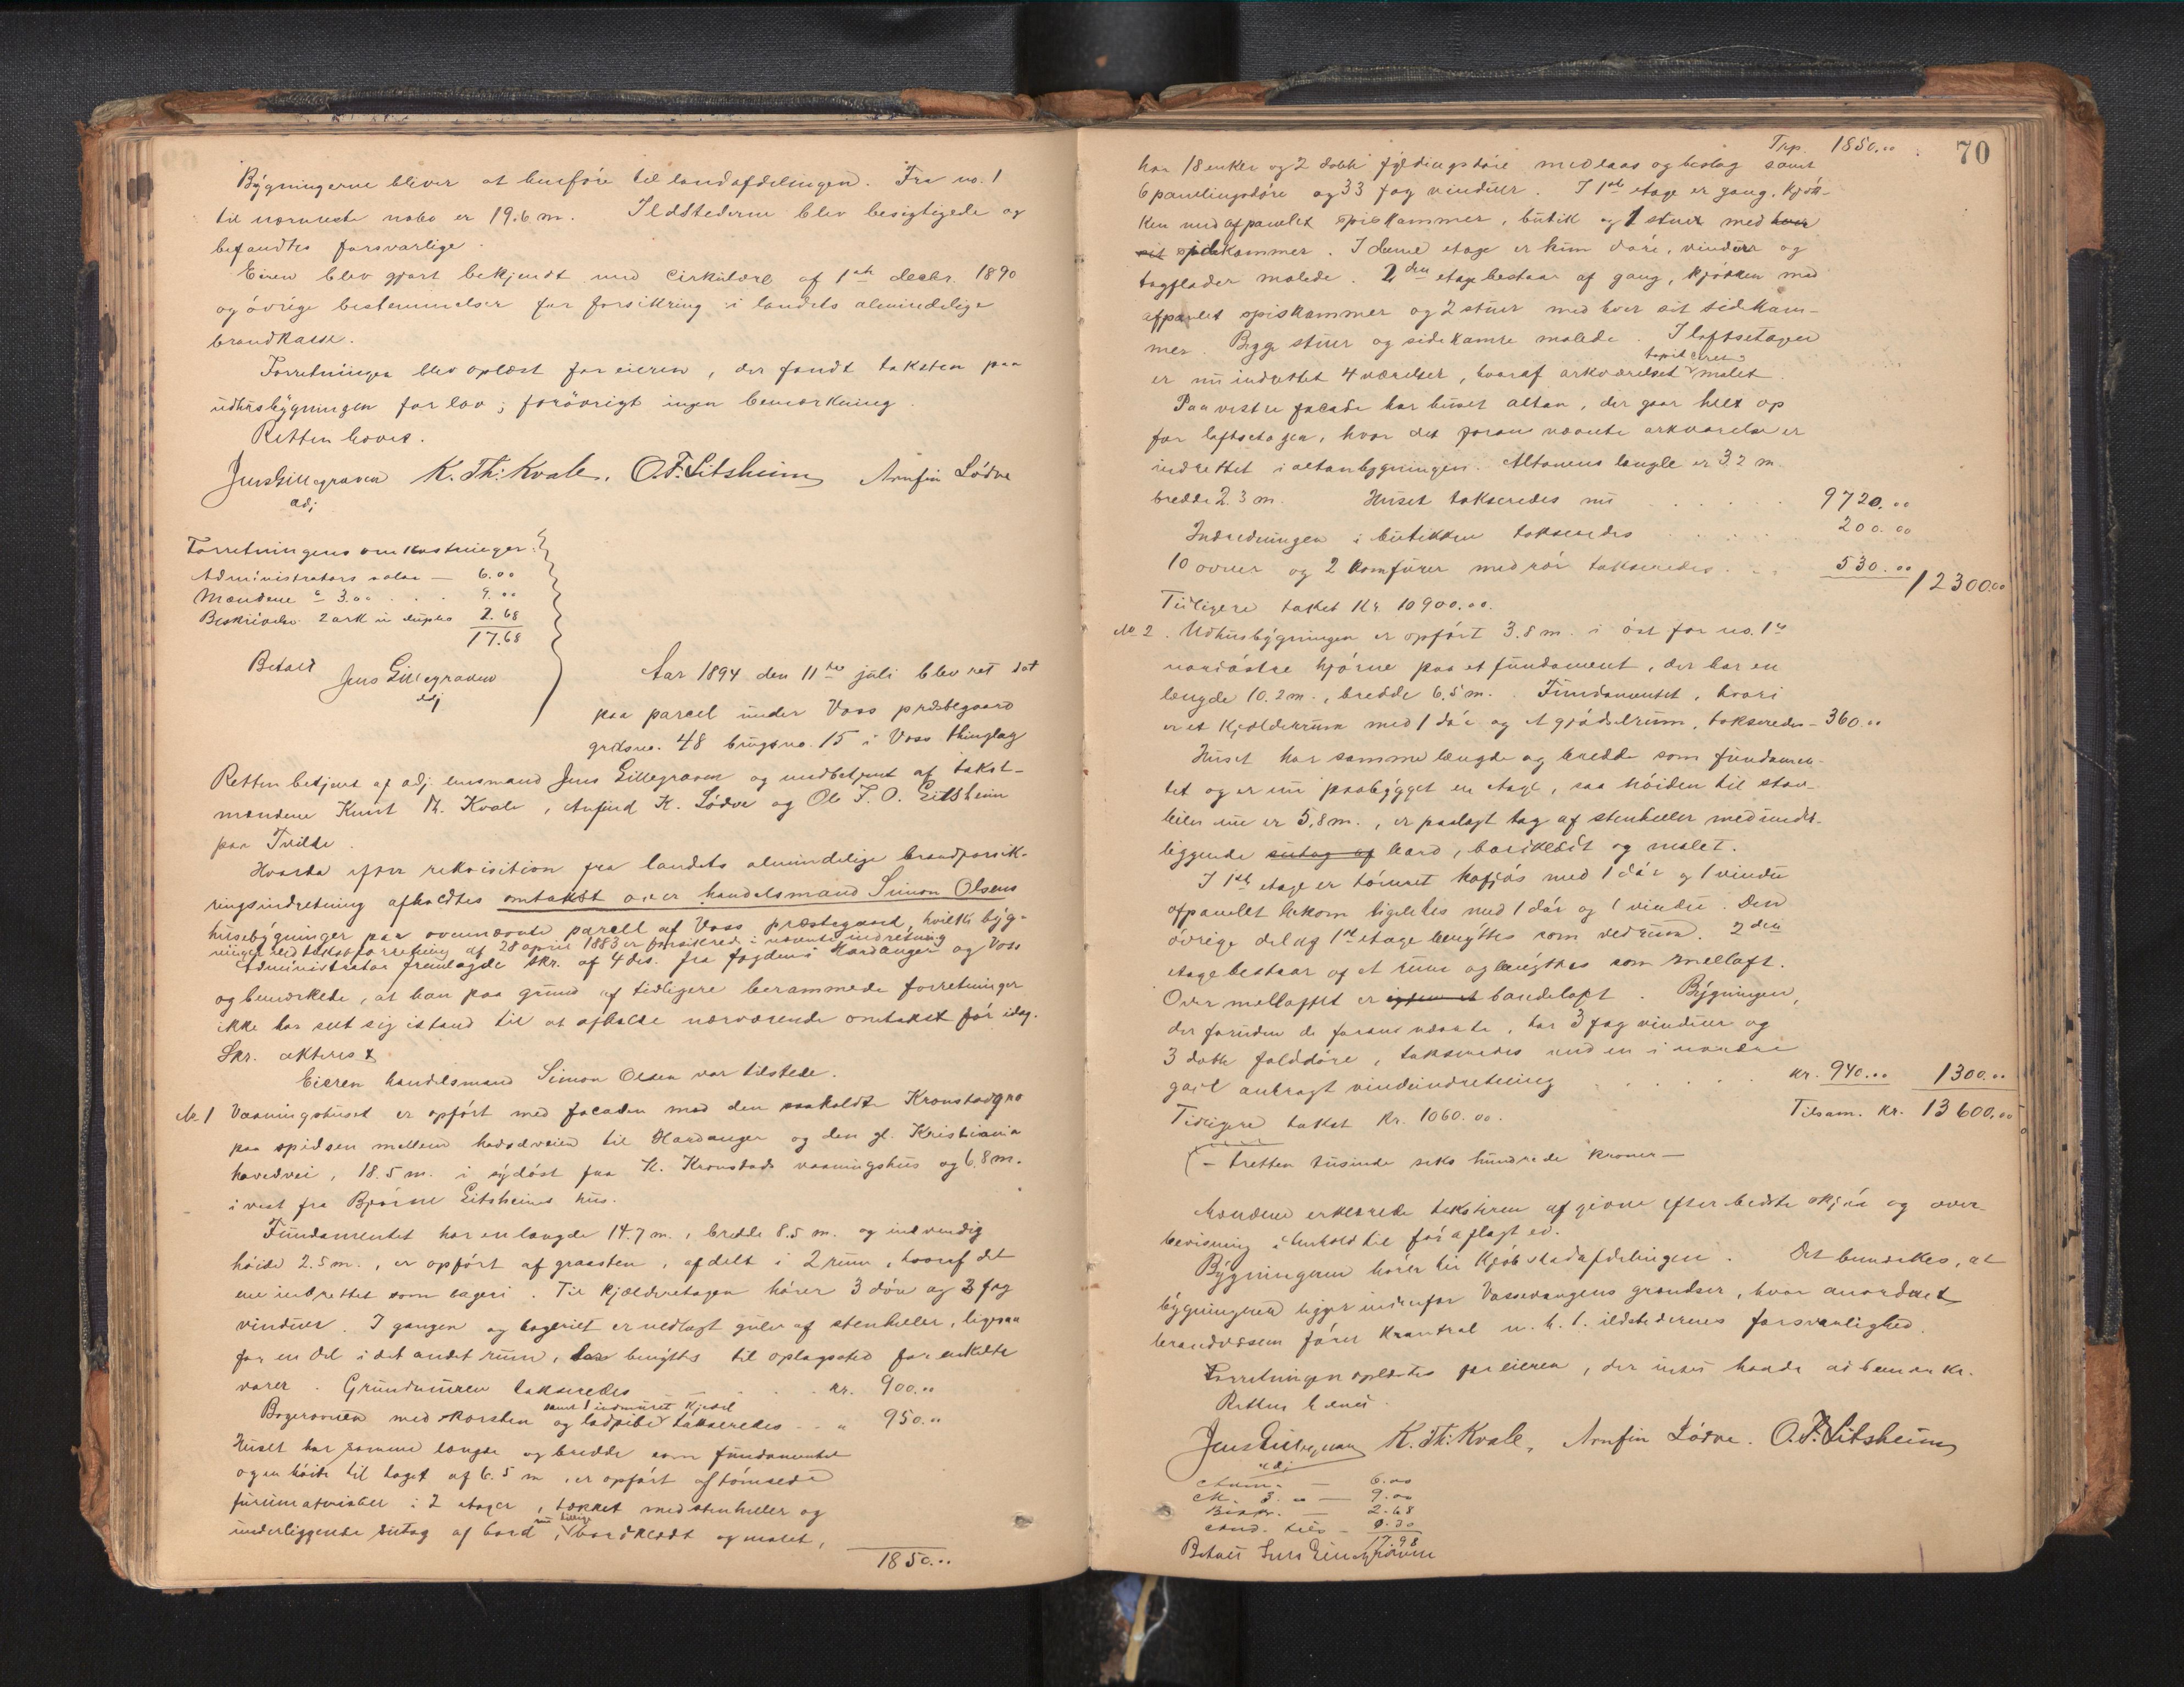 Bygningerne bliver at henføre til landafdelingen. Fra no. 1
til nærmeste nabo er 19.6 m. Ildstederne blev besigtigede og
befandtes forsvarlige.
Eieren blev gjort bekjendt med cirkulære af 1ste decbr. 1890
og øvrige bestemmelser for forsikring i landets almindelige
brandkasse.
Forretningen blev oplæst for eieren, der fandt taksten paa
udhusbygningen for lav; forøvrigt ingen bemærkning.
Retten hævet.
Jens Gillegraven K. Th: Kvale, O. F. Gitsheim Arnfin Lødve
adj
Forretningens omkostninger:
Administrators salær — 6.00
Mændene à 3.00 . . 9.00
Beskrivelse 2 ark in duplo 2.68
17.68
Betalt Jens Gillegraven
adj
Aar 1894 den 11te juli blev ret sat
paa parcel under Voss præstegaard
grdsno. 48 brugsno. 15 i Voss thinglag
Retten betjent af adj. lensmand Jens Gillegraven og medbetjent af takst-
mændene Knut Th. Kvale, Anfind K. Lødve og Ole F. O. Gitsheim
paa Tvilde.
Hvorda efter rekvisition fra landets almindelige brandforsik-
ringsindretning afholdtes omtakst over handelsmand Simon Olsens
husebygninger paa ovennævnte parcel af Voss præstegaard, hvilke byg-
ninger ved takstforretning af 28 april 1883 er forsikrede i nævnte indretning
Administrator fremlagde skr. af 4 ds. fra fogden i Hardanger og Voss
og bemærkede, at han paa grund af tidligere berammede forretninger
ikke har seet sig istand til at afholde nærværende omtakst før idag.
Skr. akteres
Eieren handelsmand Simon Olsen var tilstede.
No 1 Vaaningshuset er opført med facaden mod den saakaldte Kronstadgaa
paa spidsen mellem hovedveien til Hardanger og den gl. Kristiania
hovedvei, 18.5 m. i sydøst fra K. Kronstads vaaningshus og 6.8 m.
i vest fra Bjørne Gitsheims hus.
Fundamentet har en længde 14.7 m., bredde 8.5 m. og indvendig
høide 2.5 m., er opført af graasten, afdelt i 2 rum, hvoraf det
ene indrettet som bageri. Til kjælderetagen hører 3 døre og 3 fag
vinduer. I gangen og bageriet er nedlagt gulv af stenheller, ligesaa
for en del i det andet rum, der benyttes til oplagssted for enkelte
varer. Grundmuren takseredes . . kr. 900.00
samt 1 indmuret kjedel
Bagerovnen med skorsten og ladpibe takseredes . . " 950.00
Huset har samme længde og bredde som fundamentet
og en høide til taget af 6.5 m, er opført af tømrede
furumaterialier i 2 etager, tækket med stenheller og
nu tillige
underliggende sutag af bord, bordklædt og malet,
1850.00
70
Trp. 1850.00
har 18 enkle og 2 dobb. fyldingsdøre med laas og beslag samt
6 panelingsdøre og 33 fag vinduer. I 1ste etage er gang, kjøk-
ken med afpanelet spiskammer, butik og 1 stue med hver
sit sidekammer. I denne etage er kun døre, vinduer og
tagflader malede. 2den etage bestaar af gang, kjøkken med
afpanlet spiskammer og 2 stuer med hver sit sidekam-
mer. Begge stuer og sidekamre malede. I loftsetagen
tapitseret
er nu indrettet 4 værelser, hvoraf arkværelset malet.
Paa vestre facade har huset altan, der gaar helt op
for loftsetagen, hvor det foran nævnte arkværelse er
indrettet i altanbygningen. Altanens længde er 3.2 m.
bredde 2.3 m. Huset takseredes nu . . . . 9720.00
Indredningen i butikken takseredes . . . . 200.00
10 ovner og 2 komfurer med rør takseredes . . 530.00 12300.00
Tidligere takst Kr. 10900.00.
No 2. Udhusbygningen er opført 3.8 m. i øst for no. 1s
nordøstre hjørne paa et fundament, der har en
længde 10.2 m., bredde 6.5 m. Fundamentet, hvori
er et kjælderrum med 1 dør og et gjødselrum, takseredes — 360.00
Huset har samme længde og bredde som fundamen-
tet og er nu paabygget en etage, saa høiden til stav-
leien nu er 5,8 m., er paalagt tag af stenheller med under-
liggende sutag af bord, bordklædt og malet.
I 1ste etage er tømret kofjøs med 1 dør og 1 vindu
afpanelet lukom ligeledes med 1 dør og 1 vindu. Den
øvrige del af 1ste etage benyttes som vedrum. 2den
etage bestaar af et rum og benyttes som mellaft.
Over mellaftet er igjen et bandeloft. Bygningen,
der foruden de foran nævnte, har 3 fag vinduer og
3 dobb. folddøre, takseredes med en i nordre
gavl anbragt vindeindretning . . . . kr. 940.00 1300.00
Tidligere takst Kr. 1060.00. Tilsam. Kr. 13600.00
— tretten tusinde seks hundrede kroner —
Mændene erklærede taksteren afgivne efter bedste skjøn og over-
bevisning i henhold til før aflagt ed.
Bygningerne hører til Kjøbstadafdelingen. Det bemærkes, at
bygningerne ligger indenfor Vossevangens grændser, hvor anordnet
brandvæsen fører kontrol m. h. t. ildstedernes forsvarlighed.
Forretningen oplæstes for eieren, der intet havde at bemærke.
Retten hævet.
Jens Gillegraven K. Th: Kvale, Arnfin Lødve. O. F. Gitsheim
adj
Adm. — 6.00
M. 3.00 — 9.00
Beskr. — 2.68
0.30
17.98
Betalt Jens Gillegraven